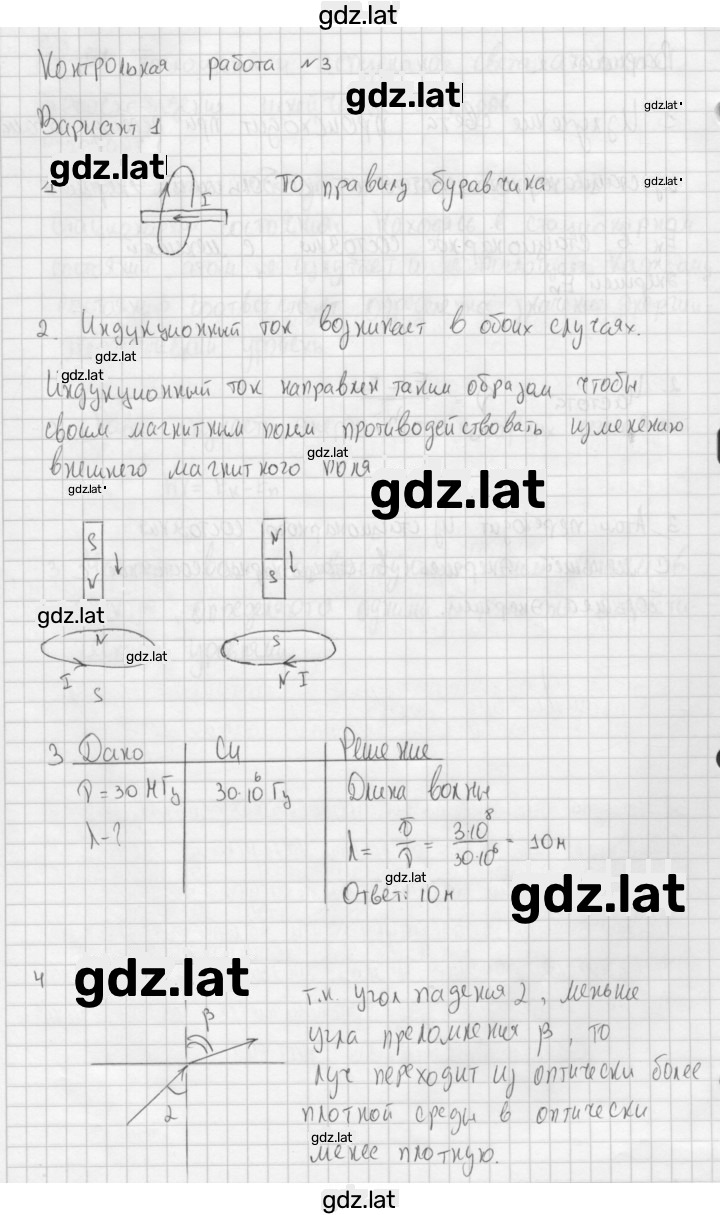 gdz.lat
Контрольная работа №3
gdz.lat
gdz.lat
Вариант 1
gdz.lat
1 I по правилу буравчика
gdz.lat
2. Индукционный ток возникает в обоих случаях.
gdz.lat
gdz.lat
Индукционный ток направлен таким образом чтобы
своим магнитним полем противодействовать изменению
gdz.lat
внешнего магнитного поля
gdz.lat
gdz.lat
S N
N S
gdz.lat
N S
gdz.lat
I N I
S
3 Дано Си Решение
ν = 30 МГц 30·10⁶ Гц Длина волны
λ - ? λ = υ/ν = 3·10⁸/30·10⁶ = 10м
gdz.lat
Ответ: 10м
gdz.lat
4 gdz.lat
т.к. угол падения 2, меньше
β угла преломления β, то
луч переходит из оптически более
2 плотной среды в оптически
gdz.lat
менее плотную.
gdz.lat